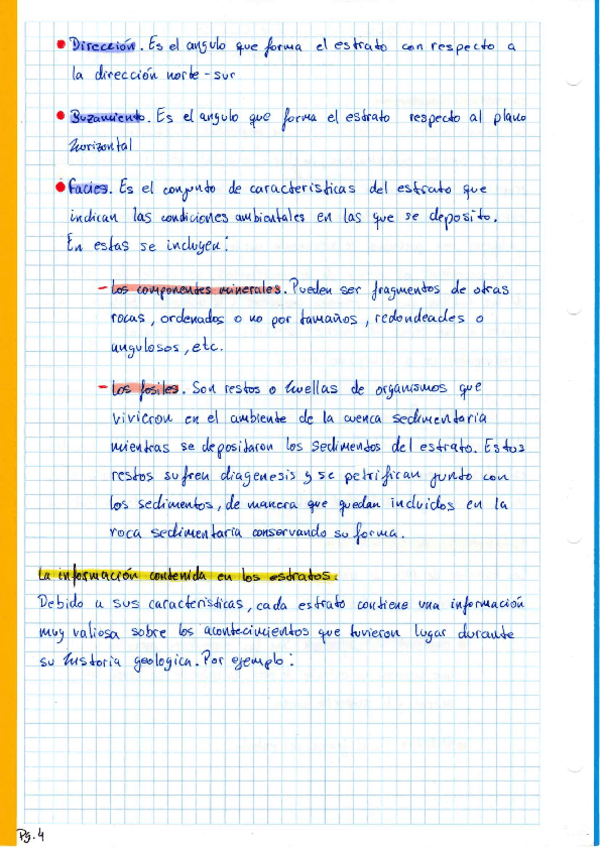 • Dirección. Es el angulo que forma el estrato con respecto a
la dirección norte-sur
• Buzamiento. Es el angulo que forma el estrato respecto al plano
horizontal
• Facies. Es el conjunto de caracteristicas del estrato que
indican las condiciones ambientales en las que se deposito.
En estas se incluyen:
- Los componentes minerales. Pueden ser fragmentos de otras
rocas, ordenados o no por tamaños, redondeades o
angulosos, etc.
- Los fosiles. Son restos o huellas de organismos que
vivieron en el ambiente de la cuenca sedimentaria
mientras se depositaron los sedimentos del estrato. Estos
restos sufren diagenesis y se petrifican junto con
los sedimentos, de manera que quedan incluidos en la
roca sedimentaria conservando su forma.
La información contenida en los estratos.
Debido a sus caracteristicas, cada estrato contiene una información
muy valiosa sobre los acontecimientos que tuvieron lugar durante
su historia geologica. Por ejemplo:
Pg. 4